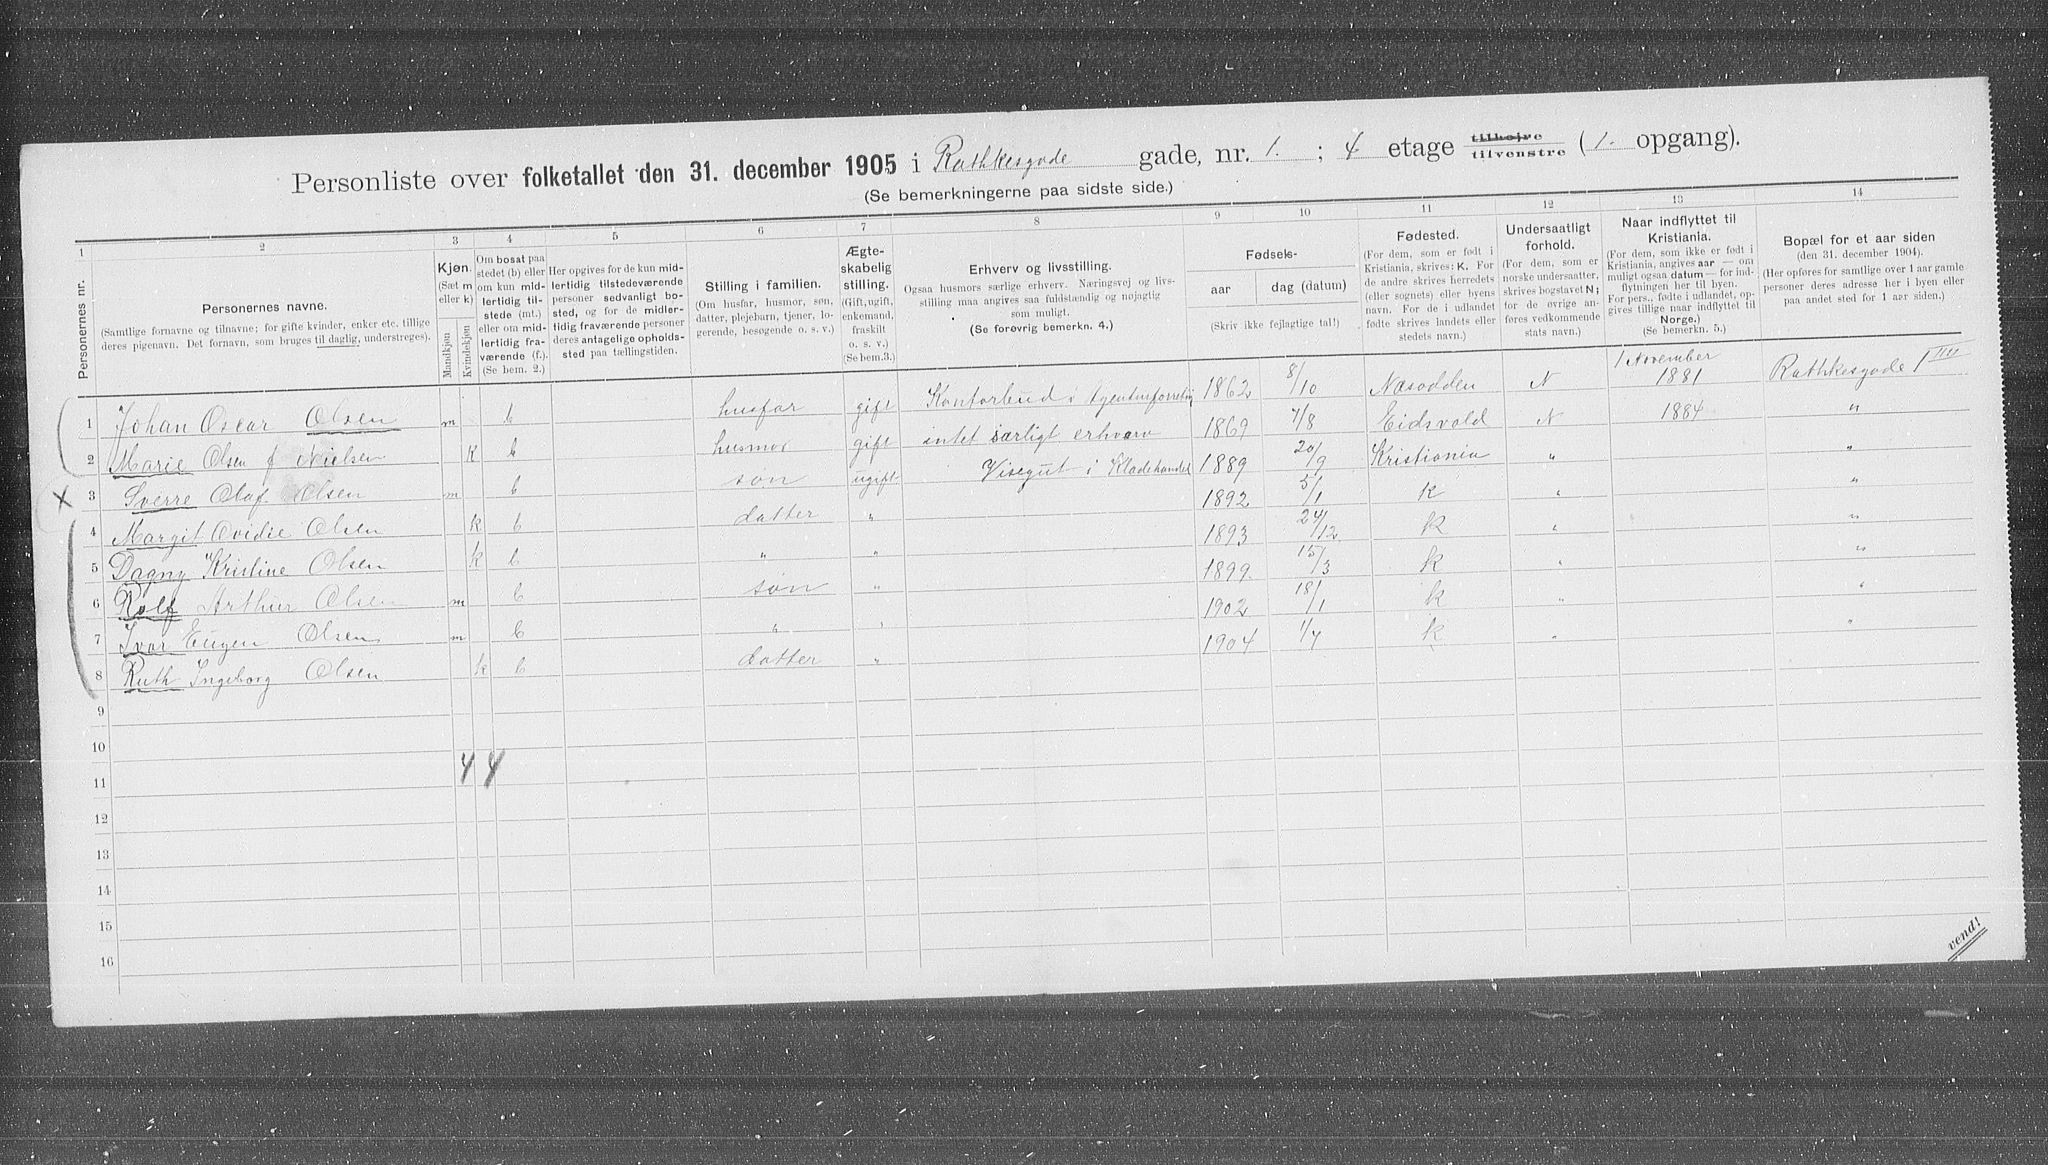 Personliste over folketallet den 31. december 1905 i Rathkesgade gade, nr. 1. ; 4 etage tilhøjre tilvenstre (1. opgang).
(Se bemerkningerne paa sidste side.)
1 2 3 4 5 6 7 8 9 10 11 12 13 14
Personernes nr.
Personernes navne.
(Samtlige fornavne og tilnavne; for gifte kvinder, enker etc. tillige
deres pigenavn. Det fornavn, som bruges til daglig, understreges).
Kjøn.
(Sæt m
eller k)
Mandkjøn
Kvindekjøn
Om bosat paa
stedet (b) eller
om kun mid-
lertidig til-
stede (mt.)
eller om mid-
lertidig fra-
værende (f.).
(Se bem. 2.)
Her opgives for de kun mid-
lertidig tilstedeværende
personer sedvanligt bo-
sted, og for de midler-
tidig fraværende personer
deres antagelige opholds-
sted paa tællingstiden.
Stilling i familien.
(Om husfar, husmor, søn,
datter, plejebarn, tjener, lo-
gerende, besøgende o. s. v.)
Ægte-
skabelig
stilling.
(Gift, ugift,
enkemand,
fraskilt
o. s. v.)
(Se bem.3.)
Erhverv og livsstilling.
Ogsaa husmors særlige erhverv. Næringsvej og livs-
stilling maa angives saa fuldstændig og nøjagtig
som muligt.
(Se forøvrig bemerkn. 4.)
Fødsels-
aar dag (datum)
(Skriv ikke fejlagtige tal!)
Fødested.
(For dem, som er født i
Kristiania, skrives: K. For
de andre skrives herredets
(eller sognets) eller byens
navn. For de i udlandet
fødte skrives landets eller
stedets navn.)
Undersaatligt
forhold.
(For dem, som er
norske undersaatter,
skrives bogstavet N;
for de øvrige an-
føres vedkommende
stats navn.)
Naar indflyttet til
Kristiania.
(For dem, som ikke er født i
Kristiania, angives aar — om
muligt ogsaa datum — for ind-
flytningen her til byen.
For pers., fødte i udlandet, op-
gives tillige naar indflyttet til
Norge.)
(Se bemerkn. 5.)
Bopæl for et aar siden
(den 31. december 1904).
(Her opføres for samtlige over 1 aar gamle
personer deres adresse her i byen eller
paa andet sted for 1 aar siden.)
1 Johan Oscar Olsen m b husfar gift Kontorbud i Agenturforretn 1862 8/10 Næsodden N 1 November 1881 Rathkesgade 1 IIII
2 Marie Olsen f Nielsen k b husmor gift intet særligt erhverv 1869 7/8 Eidsvold N 1884 "
X 3 Sverre Olaf Olsen m b søn ugift Visegut i Kladehandel 1889 20/9 Kristiania " "
4 Margit Ovidie Olsen k b datter " 1892 5/1 k " "
5 Dagny Kristine Olsen k b " " 1893 24/12 k " "
6 Rolf Arthur Olsen m b søn " 1899 15/3 k " "
7 Ivar Eugen Olsen m b " " 1902 18/1 k " "
8 Ruth Ingeborg Olsen k b datter " 1904 1/7 k " "
9
10
4 4
11
12
13
14
15
16
vend!